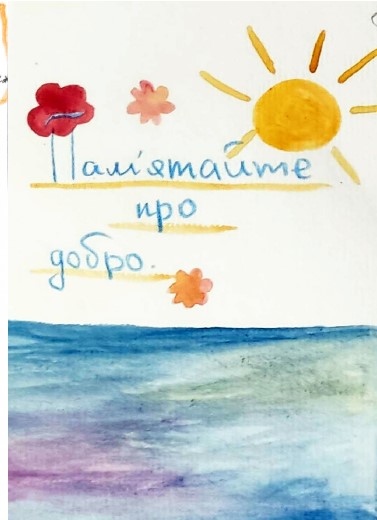 Пам'ятайте
про
добро.